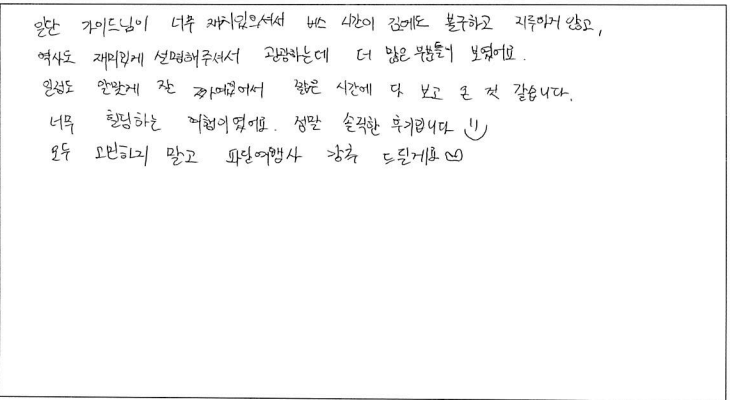 일단 가이드님이 너무 재치있으셔서 버스 시간이 김에도 불구하고 지루하지 않고,
역사도 재미있게 설명해주셔서 관광하는데 더 많은 부분들이 보였어요.
일정도 알맞게 잘 짜여있어서 짧은 시간에 다 보고 온 것 같습니다.
너무 힐링하는 여행이였어요. 정말 솔직한 후기입니다
모두 고민하지 말고 파단여행사 강추 드릴게요